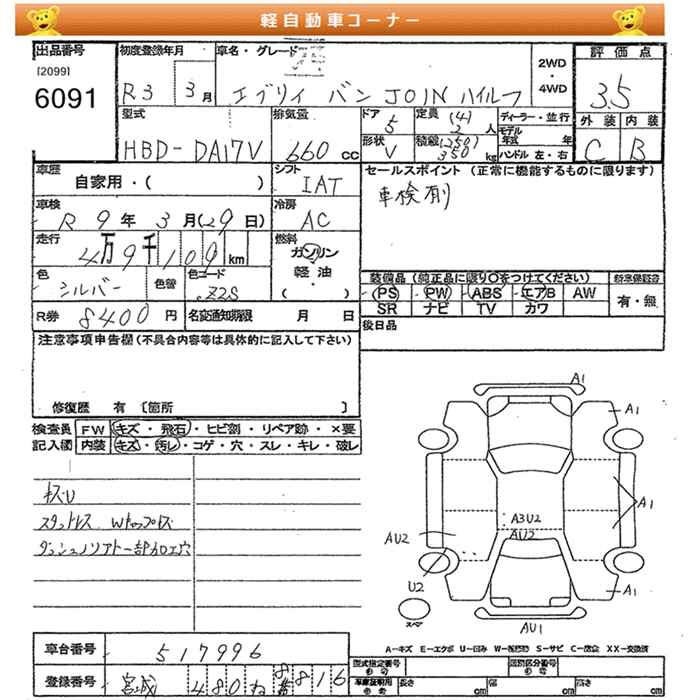 軽自動車コーナー
出品番号 初度登録年月 車名・グレード 2WD・4WD 評価点
[2099]
6091
R3 3月 エブリイ バン JOIN ハイルーフ 3.5
型式 排気量 ドア 定員 (4) ディーラー・並行 外装 内装
5 2人 モデル年式 年
HBD-DA17V 660cc 形状 積載 (250) ハンドル 左・右 C B
V 350kg
車歴 シフト セールスポイント (正常に機能するものに限ります)
自家用・( ) IAT 車検有
車検 冷房
R9年3月(29日) AC
走行 燃料
4万9千109km ガソリン
軽油
色 色替 色コード ・
シルバー Z2S ( )
装備品 (純正品に限り○をつけてください) 新車保証書
PS PW ABS エアB AW 有・無
SR ナビ TV カワ
R券 8400円 名変通知期限 月 日 後日品
注意事項申告欄 (不具合内容等は具体的に記入して下さい)
修復歴 有 [箇所 ]
検査員 FW キズ・飛石・ヒビ割・リペア跡・×要
記入欄 内装 キズ・汚レ・コゲ・穴・スレ・キレ・破レ
キズU
スタットレス Wホップレス
ダッシュノリアト一部加工穴
A1
A1
A1
A3U2
AU2 AU2
U2 A1
スペア
AU1
A-キズ E-エクボ U-凹み W-板跡 S-サビ C-腐食 XX-交換済
車台番号 517996 型式指定番号 類別区分番号
登録番号 宮城 480 ね 8816 長さ cm 幅 cm 高さ cm